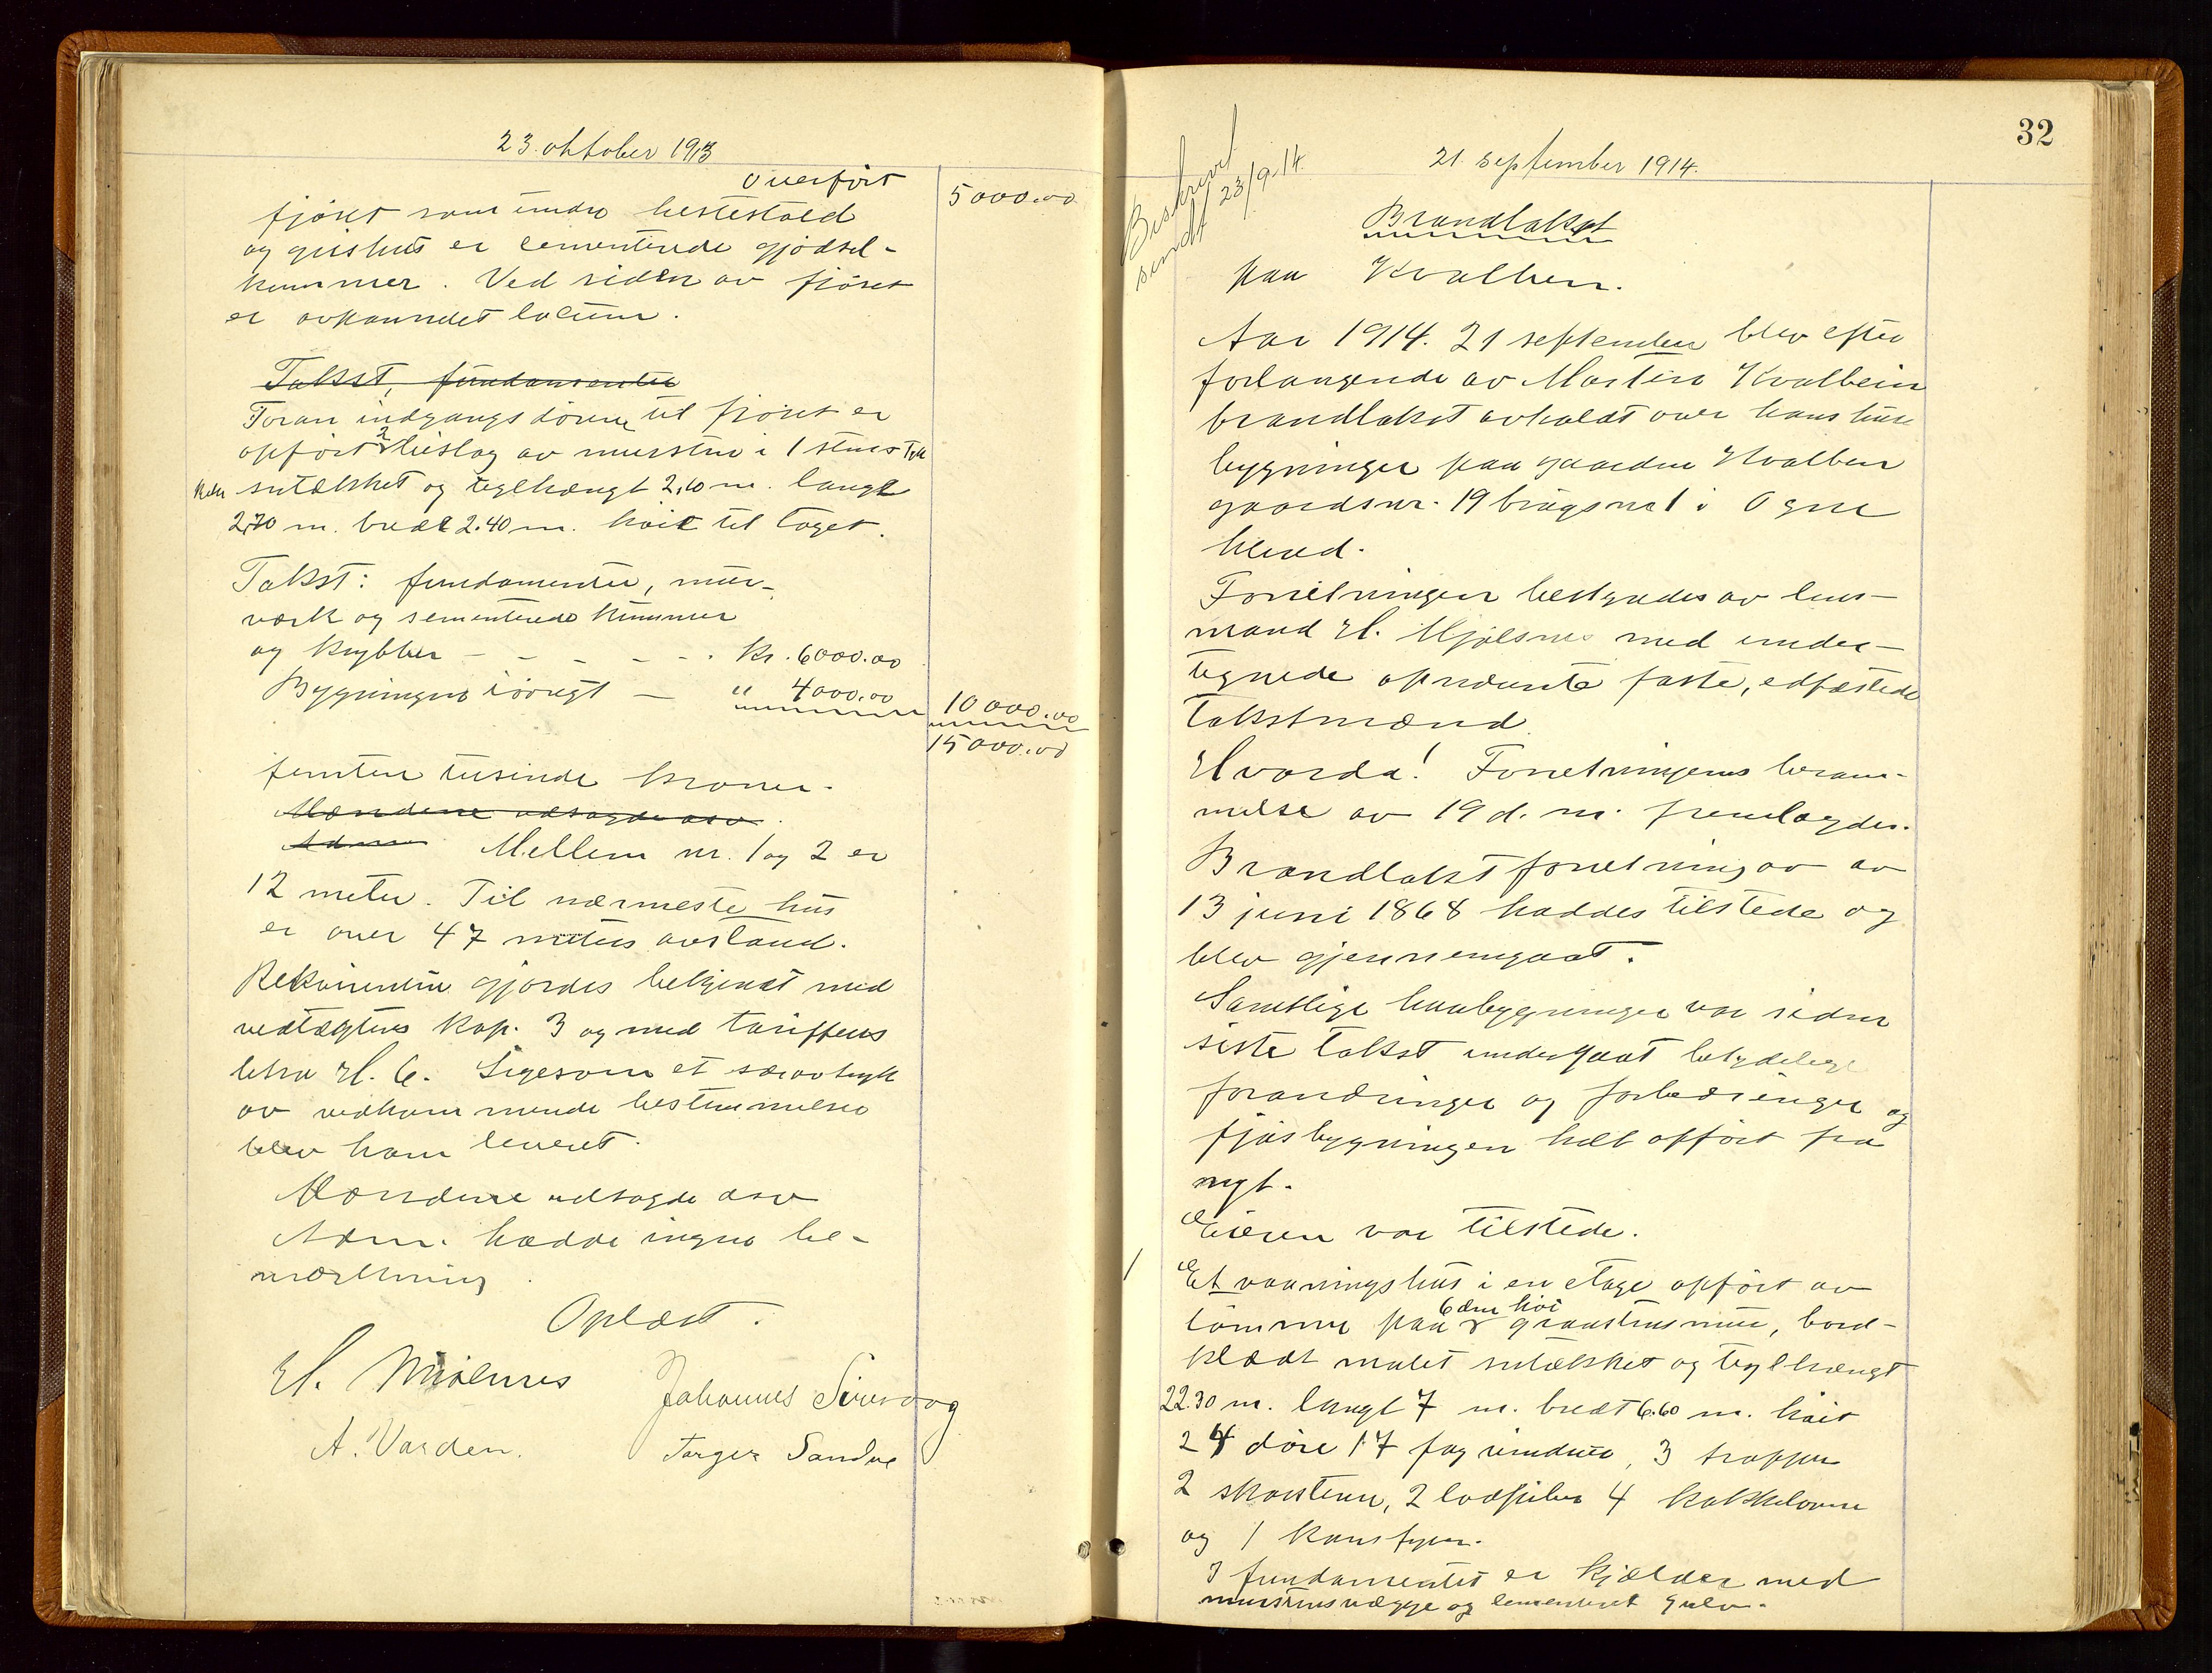 23. oktober 1913
Overført 5000.00
fjöset samt under hestestald
og grishus er cementerede gjödsel-
kummer. Ved siden av fjöset
er avpanndet locum.
Takst, fundamenter
Foran indgangsdörene til fjöset er
opfört 2 bislag av mursten i 1 stens tyk
kelse sutælsket og teglhængt 2,10 m. langt
2,70 m. bredt 2.40 m. höit til taget.
Takst: fundamenter, mur-
værk og sementerede kummer
og krybber - - - - - - Kr. 6000.00
Bygningen iövrigt - " 4000.00 10000.00
15000.00
femten tusinde kroner.
Mændene udsagde asv
Adm. Mellem nr. 1 og 2 er
12 meter. Til nærmeste hus
er over 47 meters avstand.
Rekvirenten gjordes bekjendt med
vedtægtens kap. 3 og med tariffens
litra H. 6. Ligesom et særavtryk
av vedkommende bestemmelser
blev ham leveret.
Mændene udsagde asv
Adm. hadde ingen be-
mærkning.
Oplæst.
H. Mjölsnes Johannes Sirevaag
A. Varden. Torger Sandve
32
Beskrevet
sendt 23/9.14.
21. september 1914.
Brandtakst
paa Kvalben.
Aar 1914. 21 september blev efter
forlangende av Martin Kvalbein
brandtakst avholdt over hans huse
bygninger paa gaarden Kvalben
gaardsnr. 19 brugsnr 1 i Ogne
herred.
Forretningen bestyredes av lens-
mand H. Mjölsnes med under-
tegnede opnævnte faste, edfæstede
takstmænd.
Hvorda! Forretningens beram-
melse av 19 d. m. fremlagdes.
Brandtakstforretning av av
13 juni 1868 haddes tilstede og
blev gjennemgaat.
Samtlige huubygninger var siden
siste takst undergaat betydelige
forandringer og forbedringer og
fjösbygningen helt opfört fra
nyt.
Eieren var tilstede.
1 Et vaaningshus i en etage opfört av
tömmer paa 6 dm höi graastensmur, bord-
klædt malet sutælsket og teglhængt
22.30 m. langt 7 m. bredt 6.60 m. höit
24 döre 17 fag vinduer, 3 trapper
2 skorstene, 2 lodpiber 4 kakkelovne
og 1 komfyr.
I fundamentet er kjælder med
murstensvægge og cementeret gulv.